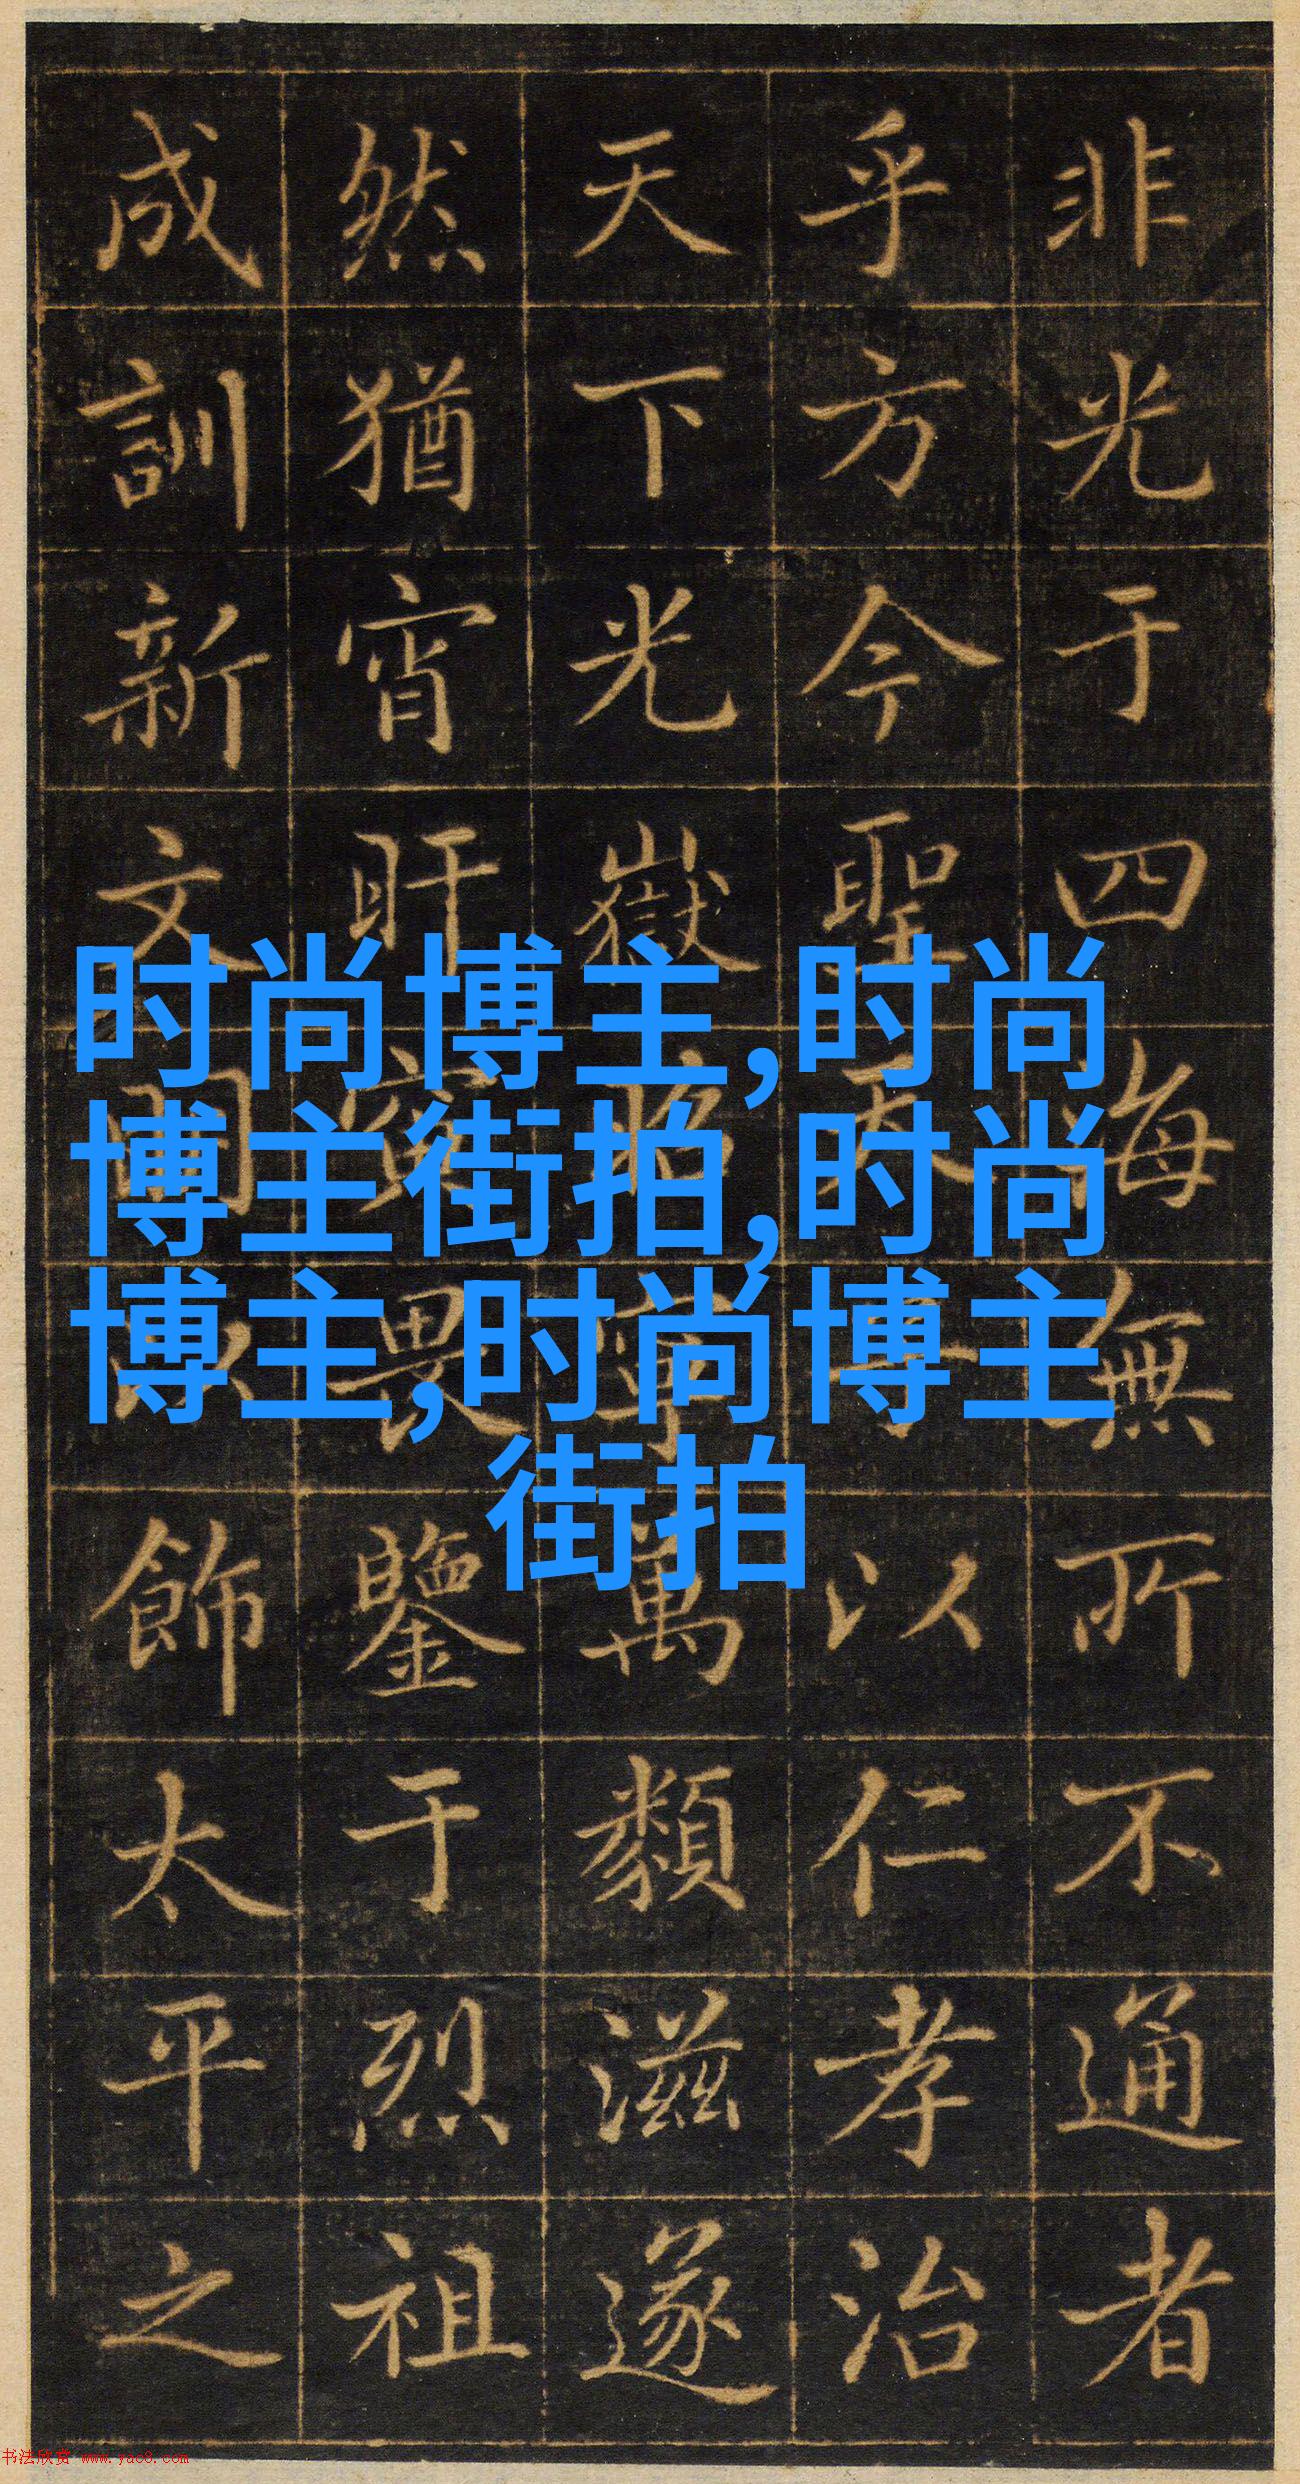 非光于四海無所不通者
乎方今聖天子以仁孝治
天下光嶽昭萬類滋遂
然猶宵旰寅畏鑒于烈祖
成訓新文以飾太平之
时尚博主,时尚
博主街拍,时尚
博主,时尚博主
街拍
书法欣赏 www.yac8.com